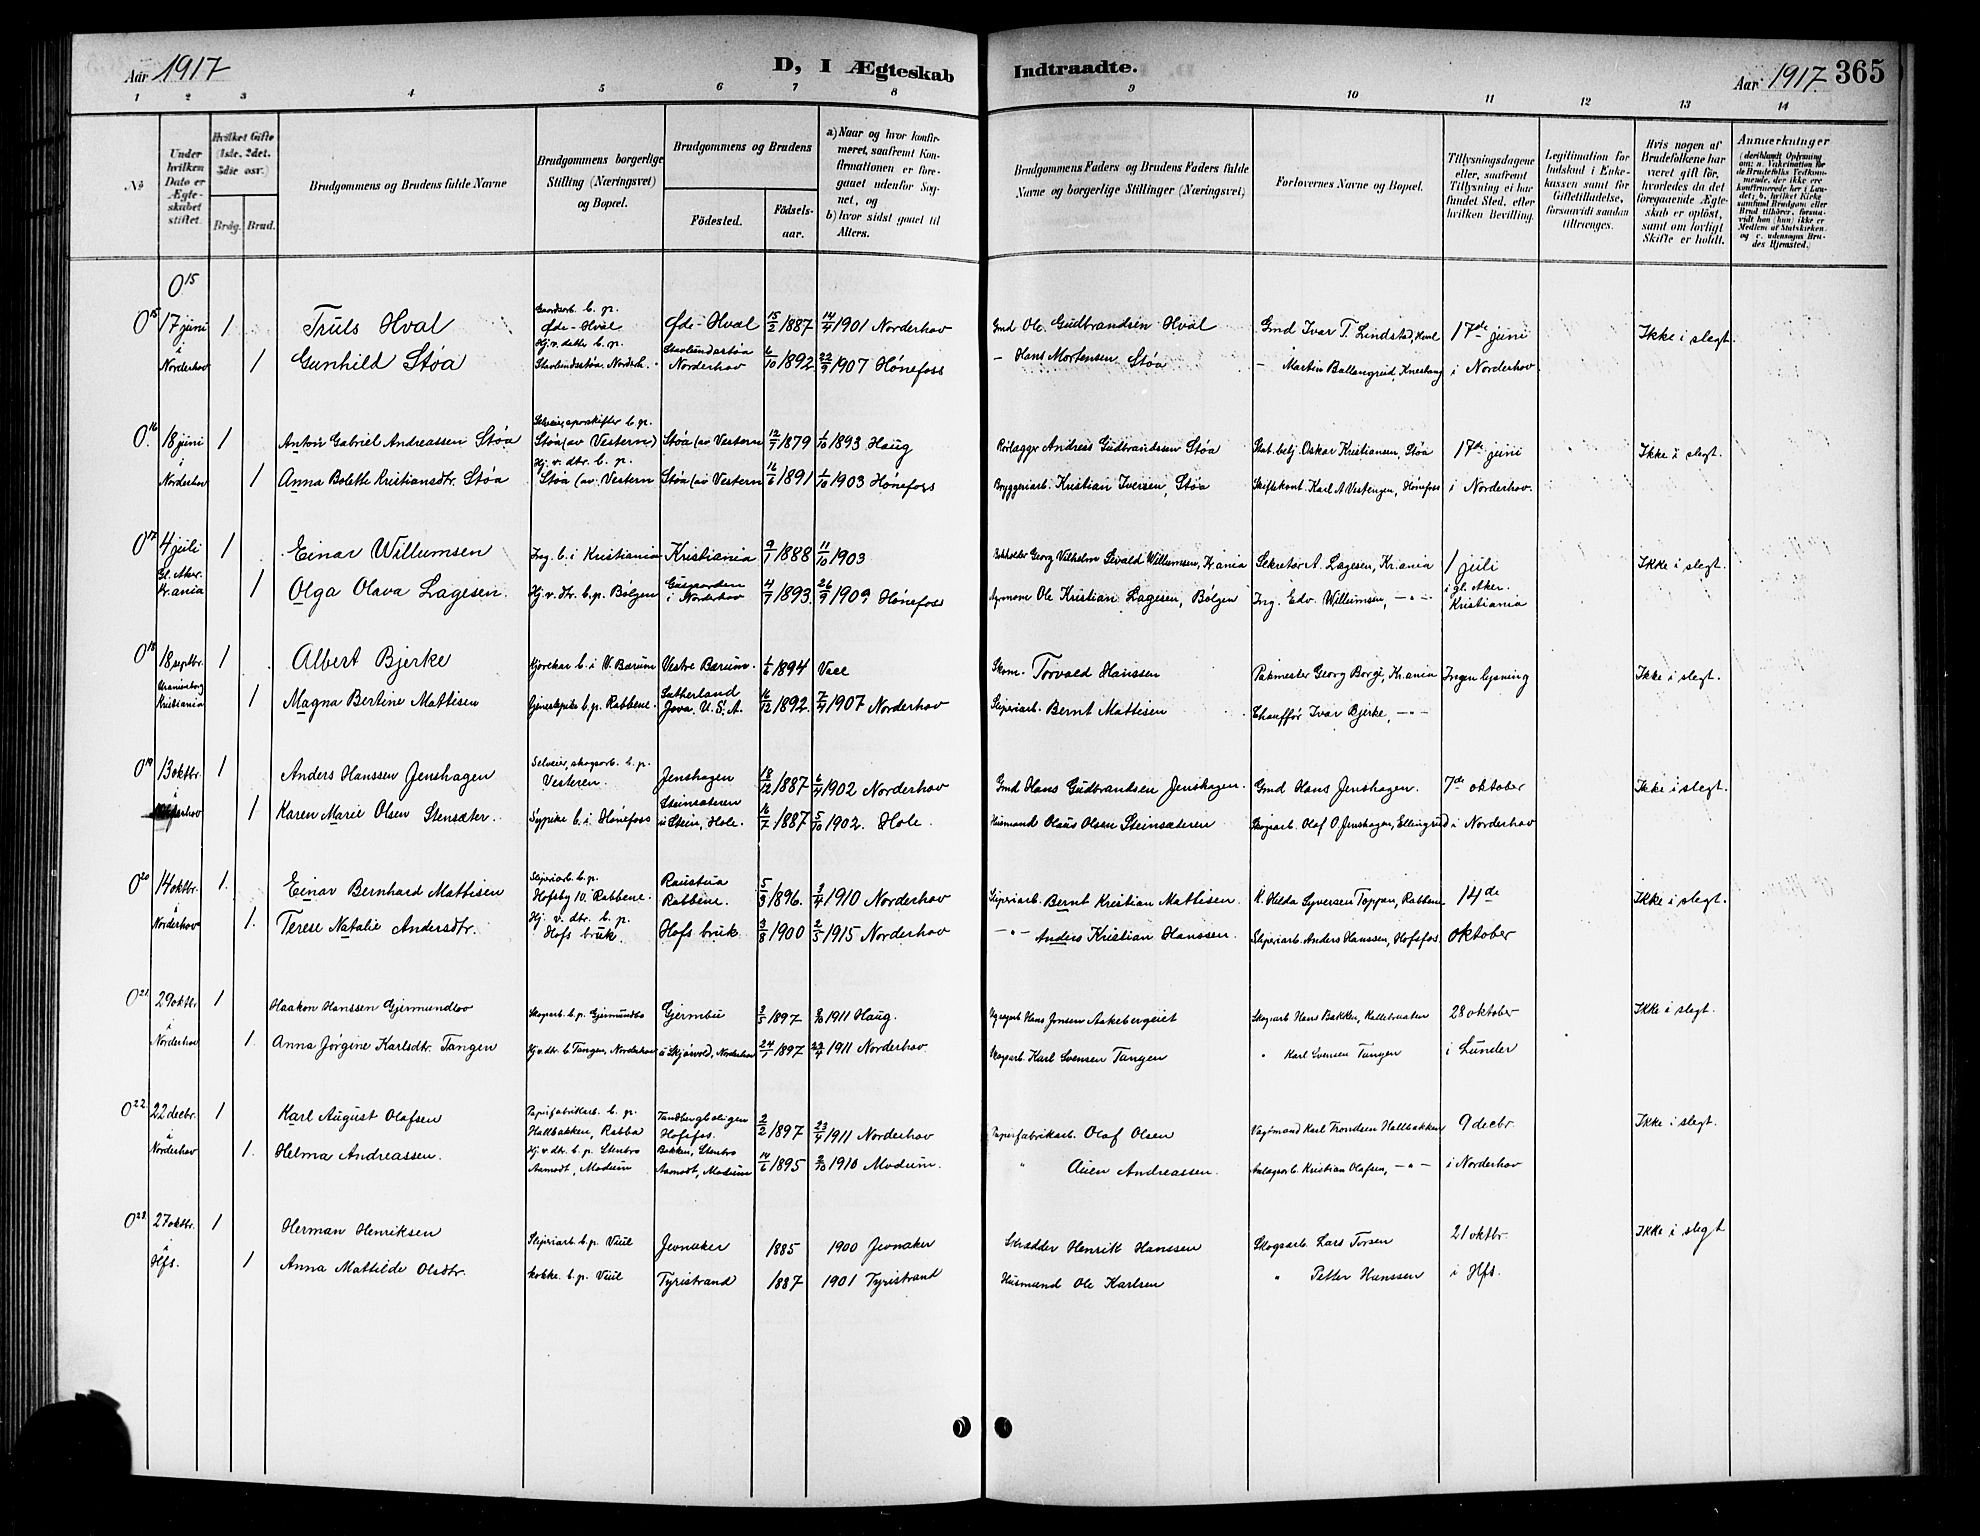 Aar 1917
D, I Ægteskab Indtraadte.
Aar 1917. 365
1 2 3 4 5 6 7 8 9 10 11 12 13 14
No
Under hvilken Dato er Ægteskabet stiftet.
Hvilket Gifte (1ste, 2det, 3die osv.)
Brdg. Brud.
Brudgommens og Brudens fulde Navne
Brudgommens borgerlige Stilling (Næringsvei) og Bopæl.
Brudgommens og Brudens
Födested.
Födselsaar.
a) Naar og hvor konfirmeret, saafremt Konfirmationen er foregaaet udenfor Sognet, og
b) hvor sidst gaaet til Alters.
Brudgommens Faders og Brudens Faders fulde Navne og borgerlige Stillinger (Næringsvei)
Forlovernes Navne og Bopæl.
Tillysningsdagene eller, saafremt Tillysning ei har fundet Sted, efter hvilken Bevilling.
Legitimation for Indskud i Enkekassen samt for Giftetilladelse, forsaavidt saadan tiltrænges.
Hvis nogen af Brudefolkene har været gift för, hvorledes da det foregaaende Ægteskab er oplöst, samt om lovligt Skifte er holdt.
Anmærkninger (deriblandt Oplysning om: a. Vakcination for de Brudefolks Vedkommende, der ikke ere konfirmerede her i Landet; b. hvilket Kirkesamfund Brudgom eller Brud tilhörer, forsaavidt han (hun) ikke er Medlem af Statskirken, og c. udensogns Brudes Hjemsted.)
0 15
0 15 17 juni 1 Truls Hval Gaardsarb. b. p. Øde-Hval Øde-Hval 15/2 1887 14/4 1901 Norderhov Gmd Ole Gudbrandsen Hval Gmd Ivar T. Lindstad, Hval 17de juni Ikke i slegt.
i Norderhov 1 Gunhild Støa Hj. v. detter b. p. Stavlundstøa, Norderh. Stavlundstøa Norderhov 6/10 1892. 22/9 1907 Hønefoss – Hans Mortensen Støa – Martin Ballangrud, i Norderhov
0. 16 18 juni 1 Anton Gabriel Andreassen Støa b. p. Støa (av Vestern) Støa (av Vestern 12/7 1879 1/10 1893 Haug Rørlægger Andreas Gudbrandssen Støa Stat. betj. Oskar Kristiansen, Støa 17de juni Ikke i slegt.
i Norderhov 1 Anna Bolette Kristiansdtr. Støa Hj. v. dtr. b. p. Støa (av Vestern Støa (av Vestern 16/6 1891 1/10 1903 Hønefoss Bryggeriarb. Kristian Iversen, Støa Karl A Vestengen, Hønefoss i Norderhov.
0 17 4 juli 1 Einar Willumsen Ing. b. i Kristiania Kristiania 9/1 1888 11/10 1903 Georg Vilhelm Sivald Willumsen, Kr.ania Sekretær A. Lagesen, Kr.ania 1 juli Ikke i slegt.
Gl. Aker. Kr.ania 1 Olga Olava Lagesen. Hj. v. dtr. b. p. Bølgen Gusgaarden i Norderhov 4/7 1893. 26/9 1909 Hønefoss Agronom Ole Kristian Lagesen, Bølgen Ing. Edv. Willumsen, –"– i gl. Aker. Kristiania
0 18 18 septbr. 1 Albert Bjerke Kjørekar b. i V. Bærum Vestre Bærum. 1/6 1894 Skom. Torvald Hanssen Pakmester Georg Borge, Kr.ania Ingen lysning Ikke i slegt.
Uranienborg Kristiania 1 Magna Bertine Mattisen Tjenestpike b. p. Rabbene. Sutherland Jova. U. S. A. 16/12 1892. 7/4 1907 Norderhov Sliperiarb. Bernt Mattisen Chauffør Ivar Bjerke, –"–
0 19 13 oktbr. 1 Anders Hanssen Jenshagen Selveier, skogsarb. b. p. Vesteren. Jenshagen 18/12 1887 6/4 1902 Norderhov Gmd Hans Gudbrandsen Jenshagen. Gmd Hans Jenshagen. 7de oktober Ikke i slegt.
i Norderhov 1 Karen Marie Olsen Stensæter. Sypike b. i Hønefoss Steinsæteren u Stein, Hole. 16/7 1887 5/10 1902. Hole. Husmand Olaus Olsen Steinsæteren Skogsarb. Olaf O. Jenshagen, Ellingsrud i Norderhov
0 20 14 oktbr. 1. Einar Bernhard Mattisen Sliperiarb. b. p. Hofsby 10. Rabbene. Raustua Rabbene. 5/3 1896. 3/4 1910 Norderhov Sliperiarb. Bernt Kristian Mattisen. K. Hilda Syversen Toppen, Rabben 14de Ikke i slegt.
i Norderhov 1. Terese Natalie Andersdtr. Hj. v. dtr. b. p. Hofs bruk. Hofs bruk 3/8 1900 2/5 1915 Norderhov –"– Anders Kristian Hanssen. Sliperiarb. Anders Hanssen, Hofsfos. oktober
0 21. 29 oktbr 1 Haakon Hanssen Gjermundbo Skogsarb. b. p. Gjermundbo Gjermbu 3/5 1897 2/10 1911 Haug. Hans Jensen Aakebergeiet Skogsarb Hans Bakken, 28 oktober Ikke i slegt.
i Norderhov 1. Anna Jørgine Karlsdtr. Tangen Hj. v. dtr. b. Tangen, Norderhov u Skjørvold, Norderhov 24/1 1897 23/4 1911 Norderhov. Skogsarb. Karl Svensen Tangen " Karl Svensen Tangen i Lunder
0 22. 22 decbr. 1 Karl August Olafsen Papirfabrikarb. b. p. Hallbakken, Rabba Tandbergboligen Hofsfos. 2/2 1897 23/4 1911 Norderhov Papirfabrikarb. Olaf Olsen Vagtmand Karl Trondsen Hallbakken 9 decbr. Ikke i slegt.
i Norderhov 1. Helma Andreassen. Hj. v. dtr. b. p. Stenbro Aamodt, Modum Bakken, Stenbro Aamodt, Modum 14/6 1895 2/10 1910 Modum. " Auen Andreassen. Anlægsarb. Kristian Olafsen, –"– i Norderhov
0 23. 27 oktbr. 1 Herman Henriksen Sliperiarb. b. p. Viul Jevnaker 1885 1900 Jevnaker Skrædder Henrik Hanssen Skogsarb. Lars Torsen 21 oktbr. Ikke i slegt
i Hfs. 1 Anna Mattilde Olsdtr. kokke. b. p. Viul Tyristrand 1887 1901 Tyristrand Husmand Ole Karlsen " Petter Hanssen i Hfs.